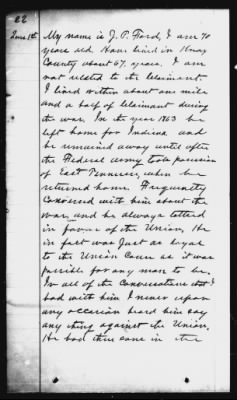 22
June 1st My name is J. P. Ford, I am 70
years old. Have lived in Knox
County about 67. years. I am
not related to the Claimant.
I lived within about one mile
and a half of Claimant during
the war. In the year 1863 he
left home for Indiana and
he remained away until after
the Federal army took possession
of East Tennessee, when he
returned home. Frequently
Conversed with him about the
war and he always talked
in favor of the Union, He
in fact was Just as loyal
to the Union Cause as it was
possible for any man to be.
In all of the Conversations that I
had with him I never upon
any occasion heard him say
any thing against the Union.
He had three sons in the